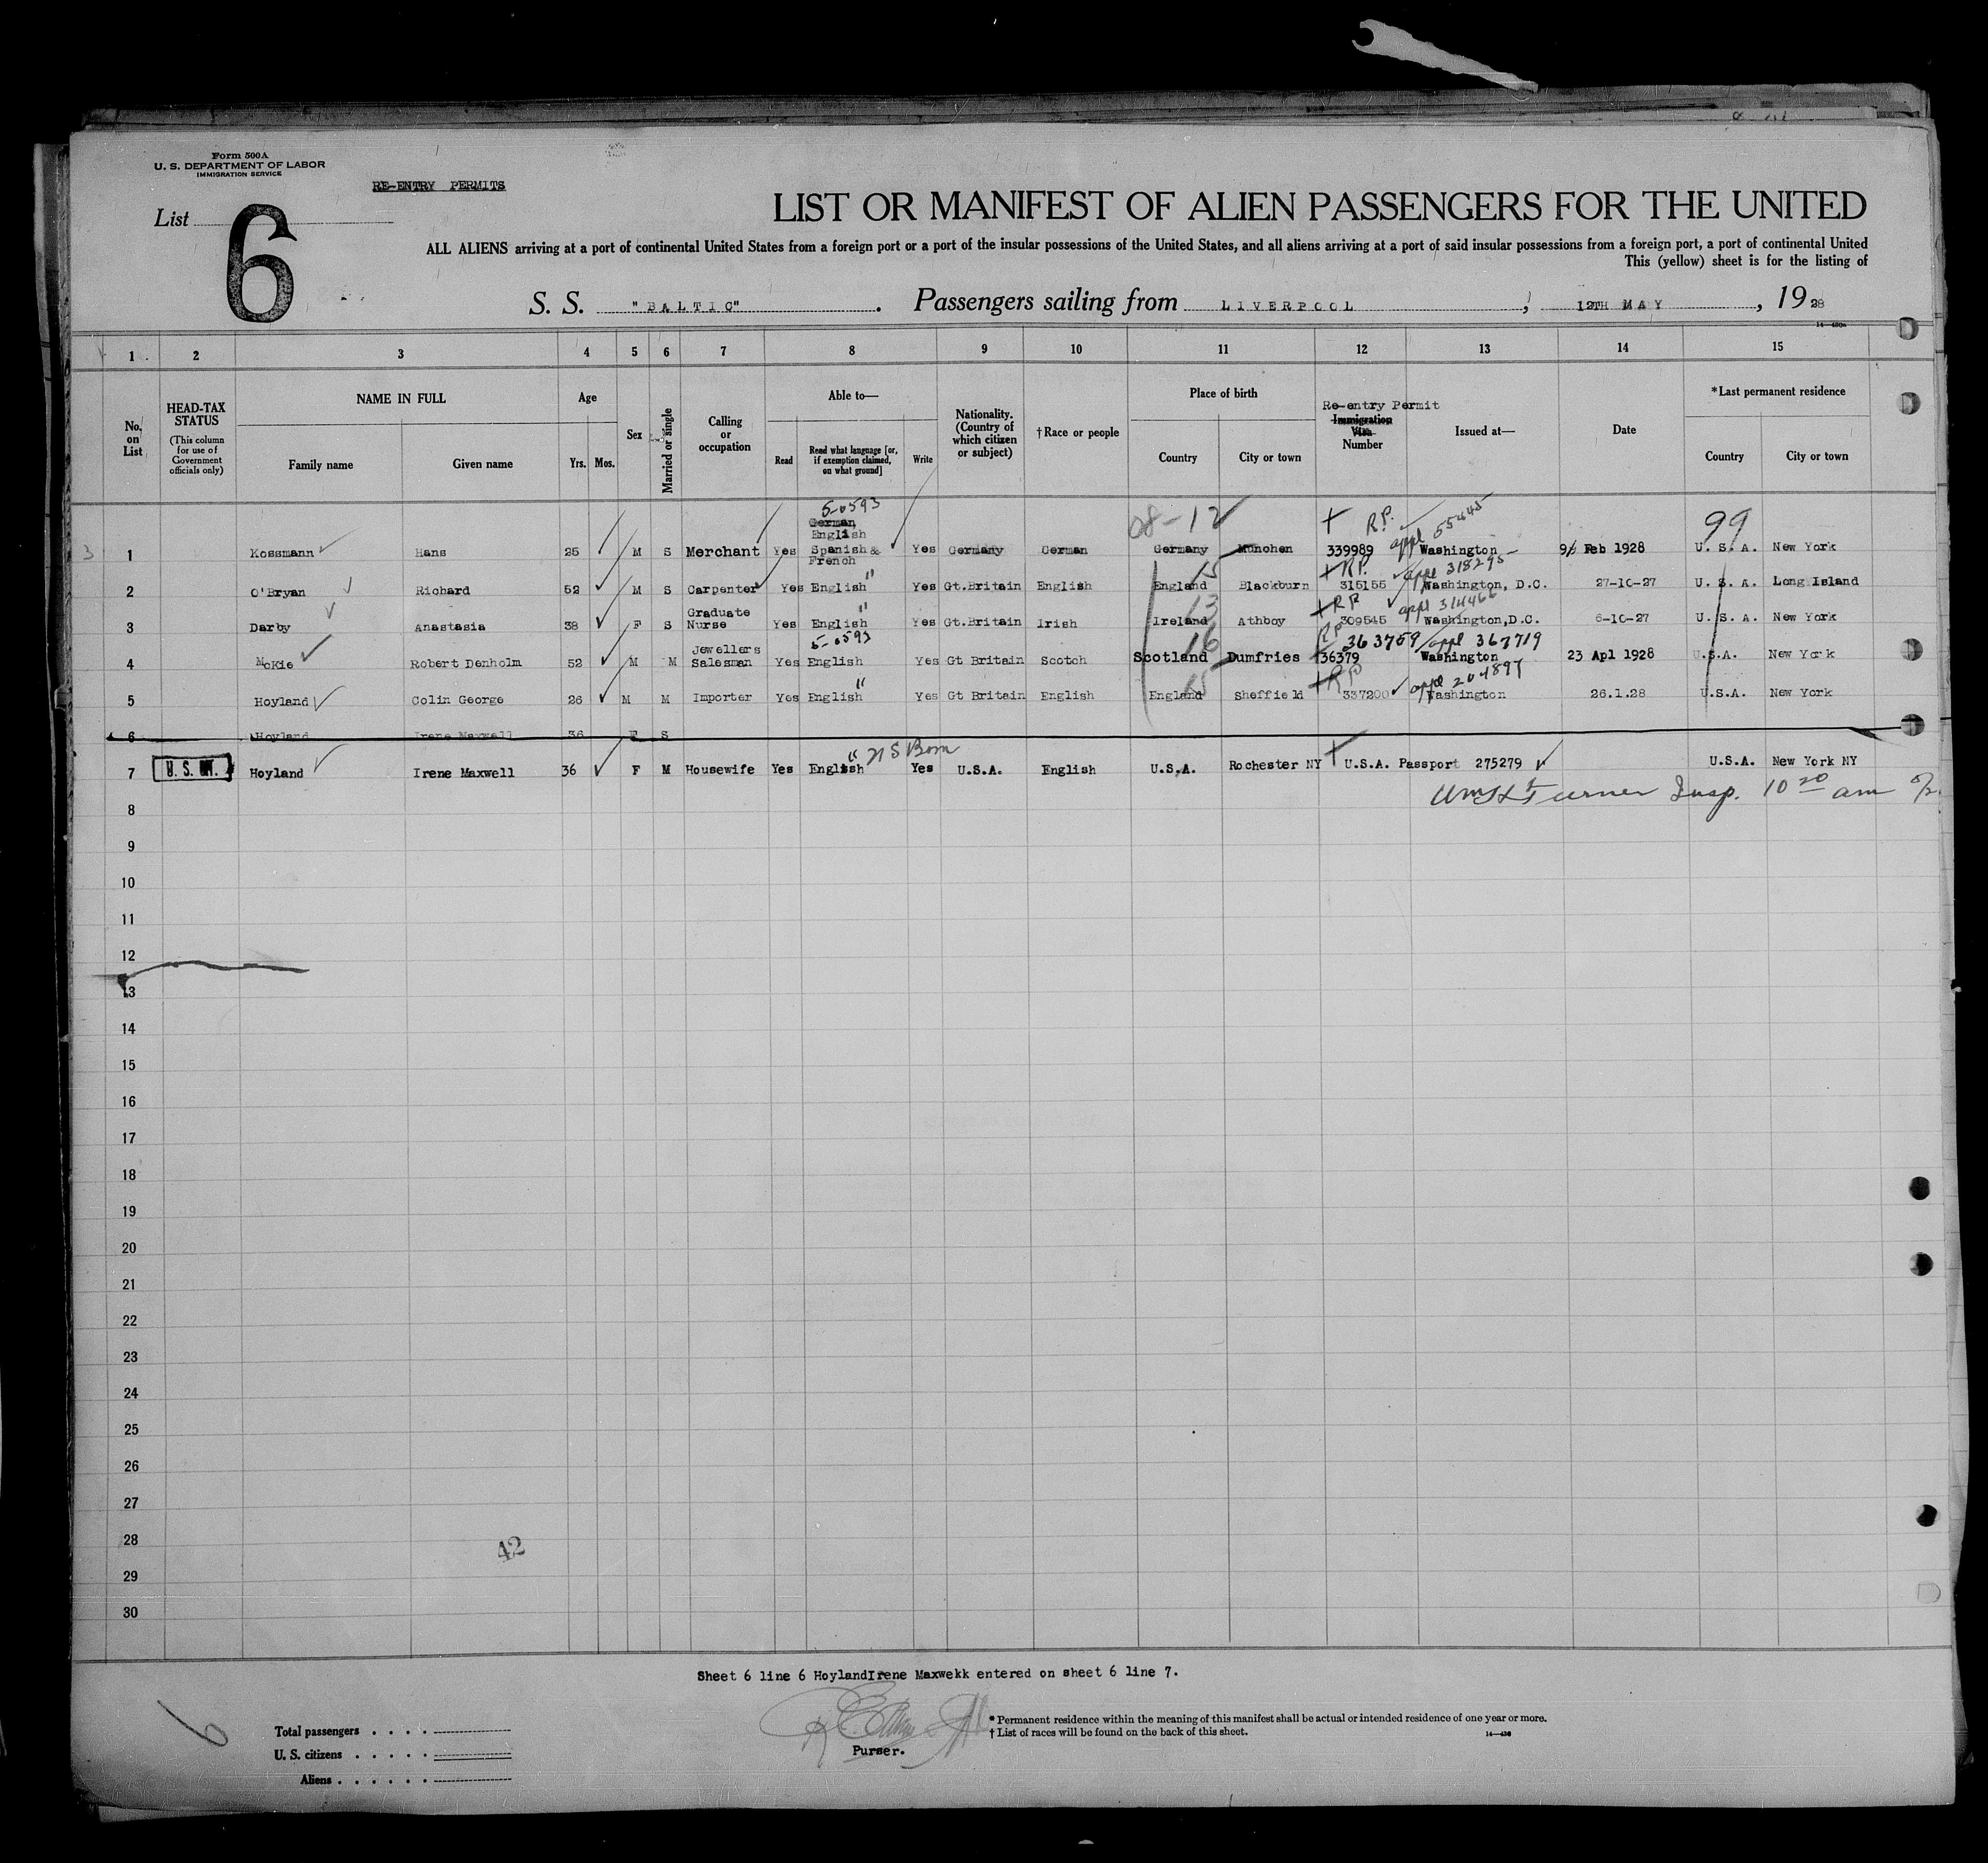 Form 500A
U. S. DEPARTMENT OF LABOR
IMMIGRATION SERVICE
RE-ENTRY PERMITS
List 6
LIST OR MANIFEST OF ALIEN PASSENGERS FOR THE UNITED
ALL ALIENS arriving at a port of continental United States from a foreign port or a port of the insular possessions of the United States, and all aliens arriving at a port of said insular possessions from a foreign port, a port of continental United
This (yellow) sheet is for the listing of
S. S. "BALTIC". Passengers sailing from LIVERPOOL, 12TH MAY, 1928
1 2 3 4 5 6 7 8 9 10 11 12 13 14 15
No. on List
HEAD-TAX STATUS (This column for use of Government officials only)
NAME IN FULL
Family name Given name
Age
Yrs. Mos.
Sex
Married or single
Calling or occupation
Able to—
Read
Read what language [or, if exemption claimed, on what ground]
Write
Nationality. (Country of which citizen or subject)
†Race or people
Place of birth
Country City or town
Re-entry Permit
Immigration Visa Number
Issued at—
Date
*Last permanent residence
Country City or town
5-0593 08-12 R.P. appl 55445 99
3 1 Kossmann Hans 25 M S Merchant Yes German English Spanish & French Yes Germany German Germany Munchen 339989 Washington 9 Feb 1928 U. S. A. New York
" 15 RP. appl 318295
2 O'Bryan Richard 52 M S Carpenter Yes English Yes Gt.Britain English England Blackburn 315155 Washington, D.C. 27-10-27 U. S. A. Long Island
" 13 RP appl 314466
3 Darby Anastasia 38 F S Graduate Nurse Yes English Yes Gt.Britain Irish Ireland Athboy 309545 Washington,D.C. 6-10-27 U. S. A. New York
5-0593 16 RP 363759 appl 367719
4 McKie Robert Denholm 52 M M Jewellers Salesman Yes English Yes Gt Britain Scotch Scotland Dumfries 36379 Washington 23 Apl 1928 U.S.A. New York
" 15 RP appl 204897
5 Hoyland Colin George 26 M M Importer Yes English Yes Gt Britain English England Sheffield 337200 Washington 26.1.28 U.S.A. New York
6 Hoyland Irene Maxwell 36 F S
" U S Born
7 U. S. Hoyland Irene Maxwell 36 F M Housewife Yes English Yes U.S.A. English U.S.A. Rochester NY U.S.A. Passport 275279 U.S.A. New York NY
Turner Insp. 10 20 am
8
9
10
11
12
13
14
15
16
17
18
19
20
21
22
23
24
25
26
27
28
42
29
30
Sheet 6 line 6 HoylandIrene Maxwekk entered on sheet 6 line 7.
6
Total passengers . . . .
U. S. citizens . . . . .
Aliens . . . . . .
Purser.
* Permanent residence within the meaning of this manifest shall be actual or intended residence of one year or more.
† List of races will be found on the back of this sheet.
14—430